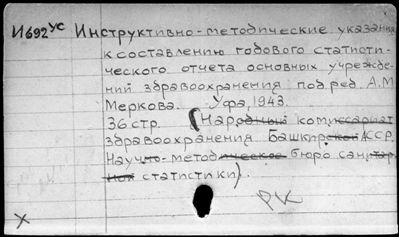 И692ус Инструктивно-методические указания
к составлению годового статисти-
ческого отчета основных учрежде-
ний здравоохранения под ред. А.М.
Меркова. Уфа, 1943.
36 стр. (Народный комиссариат
здравоохранения Башкирской АССР.
Научно-методическое бюро санитар-
ной статистики).
РК
X